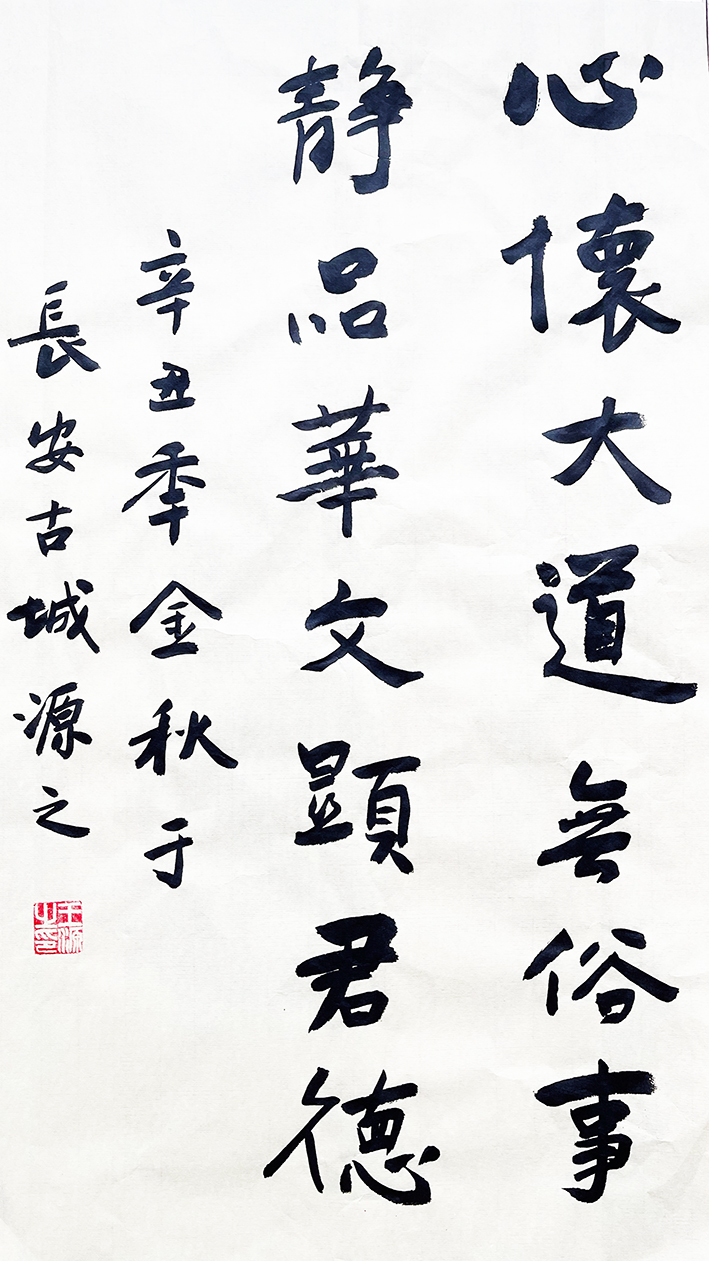 心懷大道無俗事
静品華文顯君德
辛丑季金秋于
長安古城源之
王源之印